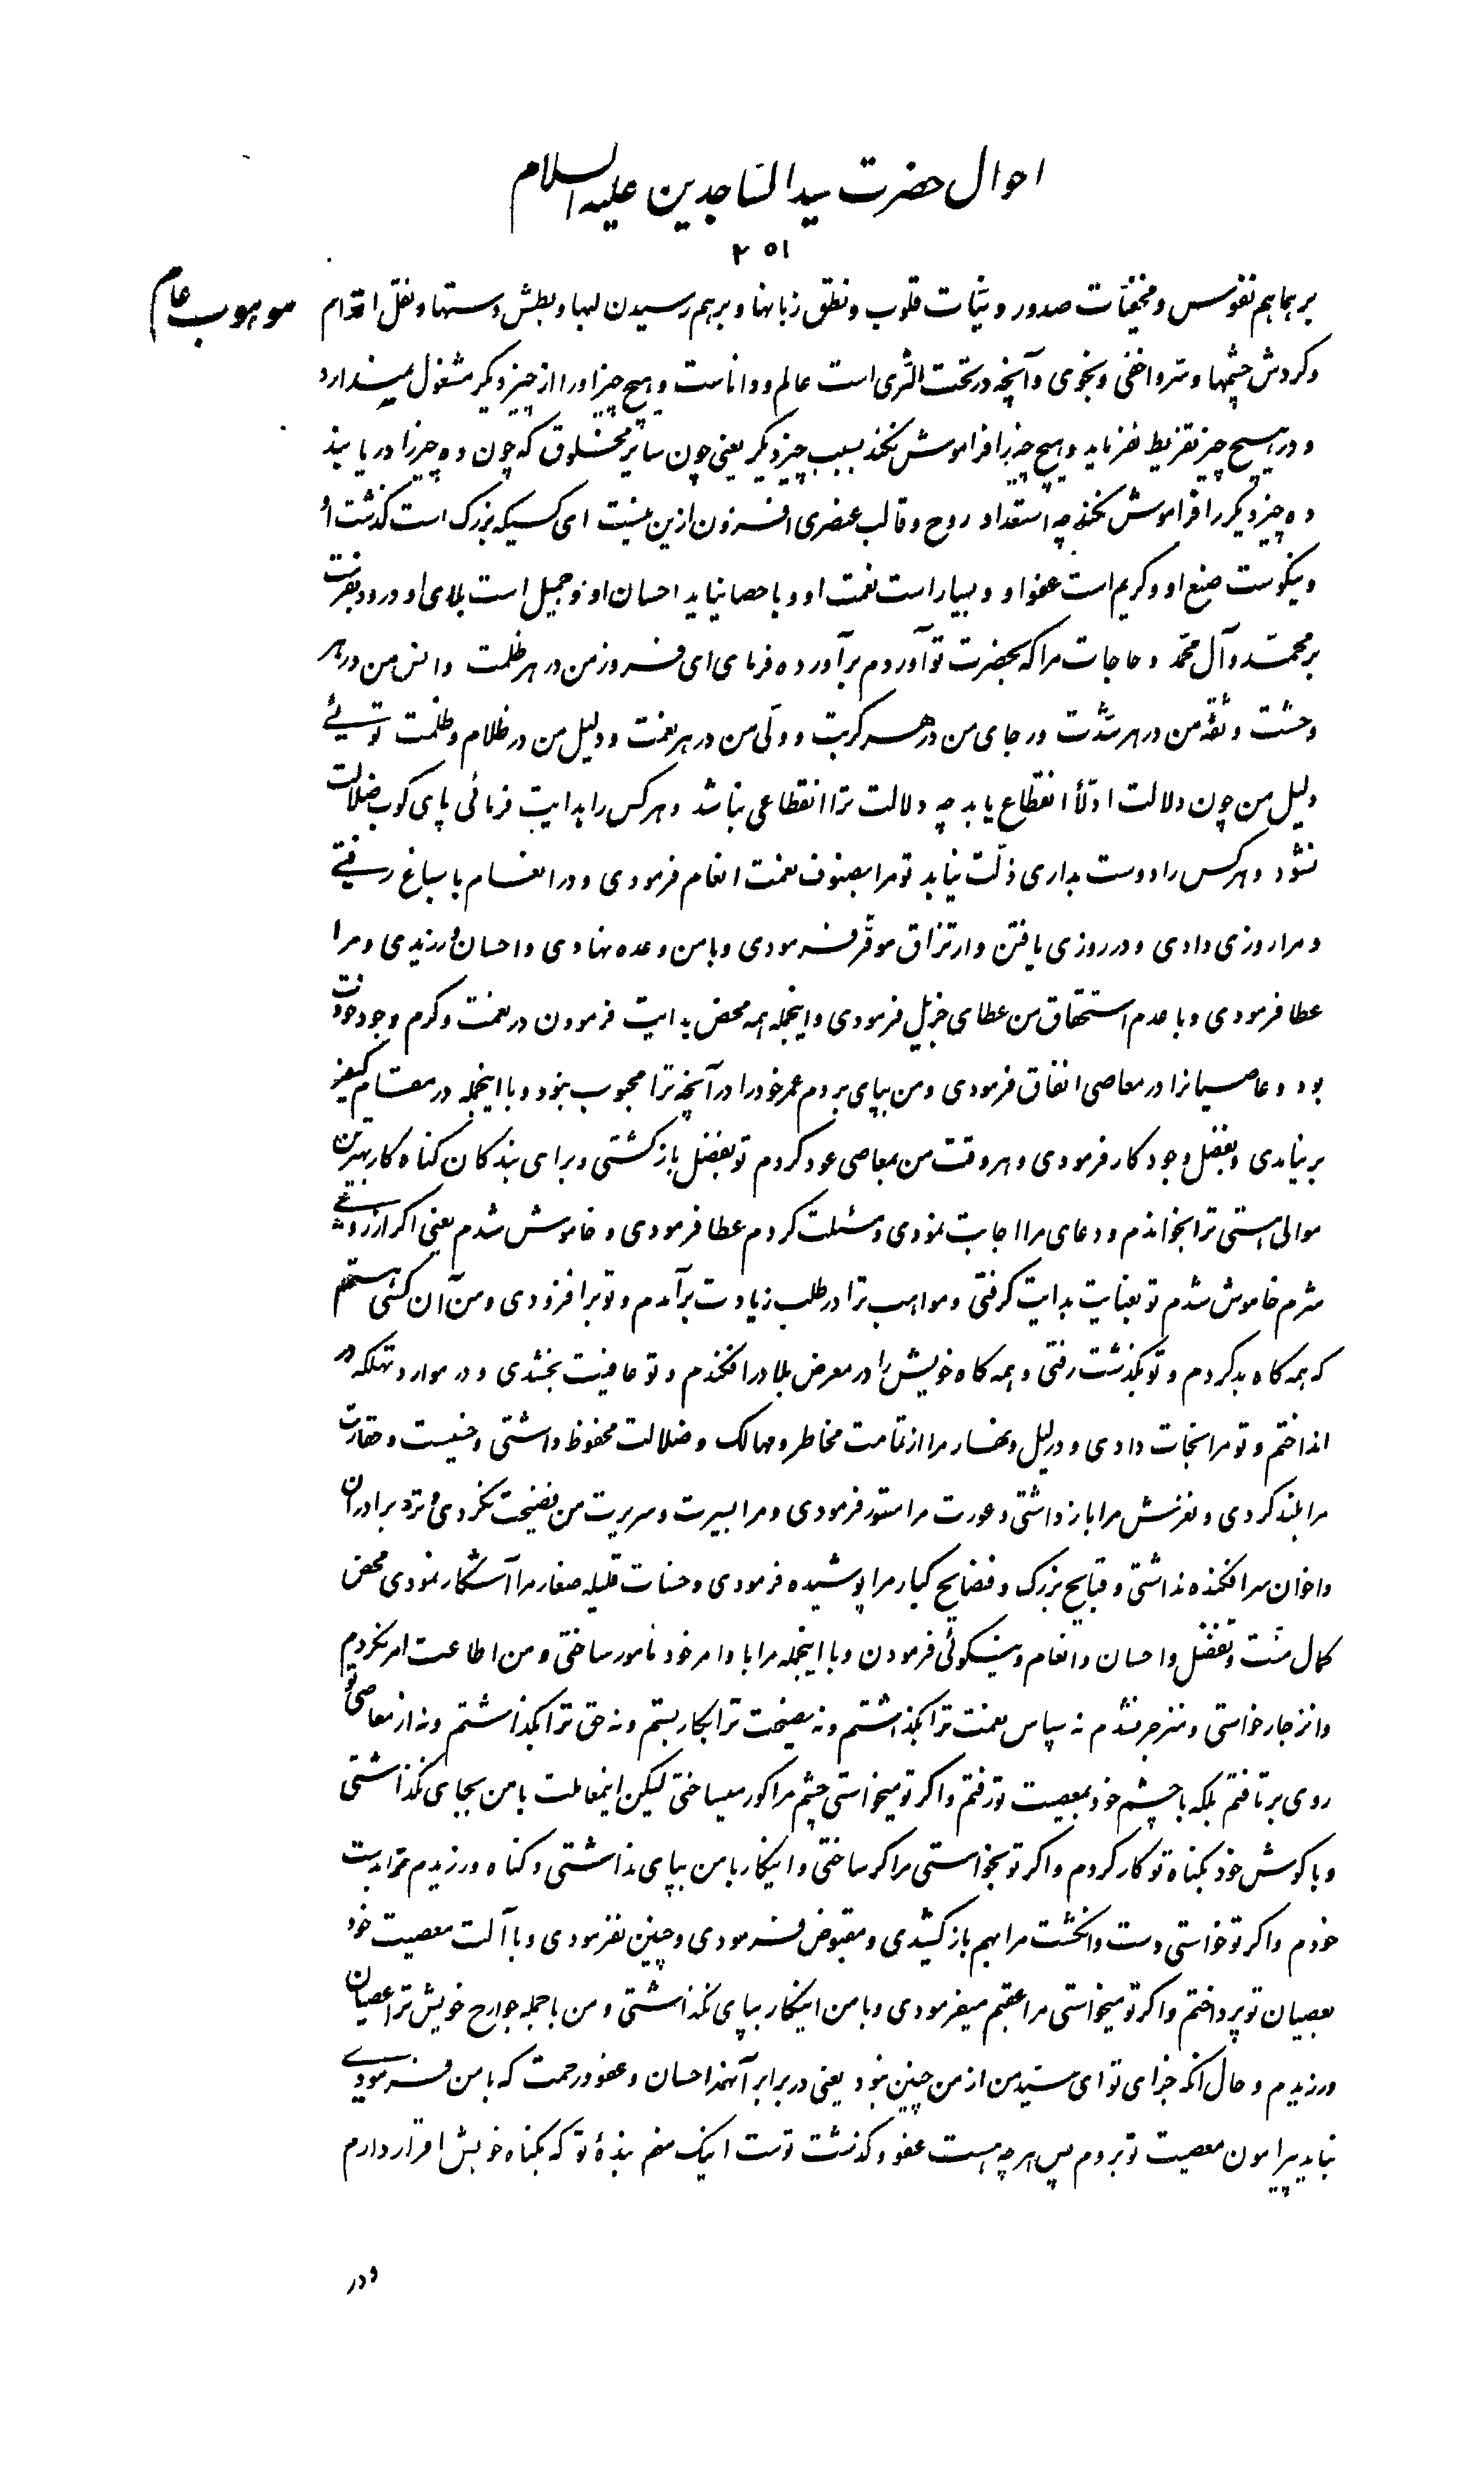 احوال حضرت سید الساجدین علیه السلام
۲۵۱
موهوب عام
بر هماهم نفوس و مخفیّات صدور و نیّات قلوب و نطق زبانها و بر هم رسیدن لبها و بطش دستها و نقل اقدام
و گردش چشمها و سرّ و اخفی و نجوی و آنچه در تحت الثّری است عالم و داناست و هیچ چیز او را از چیز دیگر مشغول نمیدارد
و در هیچ چیز تفریط نفرماید و هیچ چیز را فراموش نکند بسبب چیز دیگر یعنی چون سایر مخلوق که چون ده چیز را دریابند
ده چیز دیگر را فراموش نکند چه استعداد روح و قالب عنصری افزون ازین نیست ای کسیکه بزرگ است گذشت او
و نیکوست صنع او و کریم است عفو او و بسیار است نعمت او و باحصا نیاید احسان او و جمیل است بلای او درود بفرست
بر محمّد و آل محمّد و حاجات مرا که بحضرت تو آوردم برآورده فرمای ای فروز من در هر ظلمت و انس من در هر
وحشت و ثقهٔ من در هر شدّت و رجای من در هر کربت و ولّی من در هر نعمت و دلیل من در ظلام و ظلمت توئی
دلیل من چون دلالت ادلّا انقطاع یابد چه دلالت ترا انقطاعی نباشد و هر کس را هدایت فرمائی پای کوب ضلالت
نشود و هر کس را دوست بداری ذلّت نیابد تو مرا بصنوف نعمت انعام فرمودی و در انعام باسباغ رفتی
و مرا روزی دادی و در روزی یافتن و ارتزاق موفّر فرمودی و با من وعده نهادی و احسان ورزیدی و مرا
عطا فرمودی و با عدم استحقاق من عطای جزیل فرمودی و اینجمله همه محض بدایت فرمودن در نعمت و کرم وجود خودت
بود و عاصیانرا در معاصی انفاق فرمودی و من بپای بردم عمر خود را در آنچه ترا محبوب نبود و با اینجمله در مقام کیفر
برنیامدی و بفضل وجود کار فرمودی و هر وقت من بمعاصی عود کردم تو بفضل بازگشتی و برای بندگان گناه کار بهترین
موالی هستی ترا بخواندم و دعای مرا اجابت نمودی و مسئلت کردم عطا فرمودی و خاموش شدم یعنی اگر از روی
شرم خاموش شدم تو بعنایت بدایت گرفتی و مواهب ترا در طلب زیادت برآمدم و تو برافزودی و من آن کسی هستم
که همه گاه بد کردم و تو بگذشت رفتی و همه گاه خویش را در معرض بلا درافکندم و تو عافیت بخشدی و در موارد تهلکه در
انداختم و تو مرا نجات دادی و در لیل و نهار مرا از تمامت مخاطر و مهالک و ضلالت محفوظ داشتی و خسیست و حقارت
مرا بلند کردی و لغزش مرا باز داشتی و عورت مرا مستور فرمودی و مرا بسیرت و سریرت من فضیحت نکردی و نزد برادران
و اخوان سرافکنده نداشتی و قبایح بزرگ و فضایح کبار مرا پوشیده فرمودی و حسنات قلیله صغار مرا آشکار نمودی محض
کمال منّت و تفضّل و احسان و انعام و نیکوئی فرمودن و با اینجمله مرا باوامر خود مامور ساختی و من اطاعت امر نکردم
و انزجار خواستی و منزجر نشدم نه سپاس نعمت ترا بگذاشتم و نه نصیحت ترا بکار بستم و نه حق ترا بگذاشتم و نه از معاصی تو
روی برتافتم بلکه با چشم خود بمعصیت تو رفتم و اگر تو میخواستی چشم مرا کور میساختی لیکن اینمعاملت با من بجای نگذاشتی
و با گوش خود بگناه تو کار کردم و اگر تو بخواستی مرا کر ساختی و اینکار با من بپای نداشتی و گناه ورزیدم ترا بدست
خودم و اگر تو خواستی دست و انگشت مرا بهم باز کشیدی و مقبوض فرمودی و چنین نفرمودی و با آلت معصیت خود
بعصیان تو پرداختم و اگر تو میخواستی مرا عقیم میفرمودی و با من اینکار بپای نگذاشتی و من با جمله جوارح خویش ترا عصیان
ورزیدم و حال آنکه جزای تو ای سیّد من از من چنین نبود یعنی در برابر آنهمه احسان و عفو و رحمت که با من فرمودی
نباید پیرامون معصیت تو بردم پس هر چه هست عفو و گذشت توست اینک منم بندهٔ تو که بگناه خویش اقرار دارم
و در